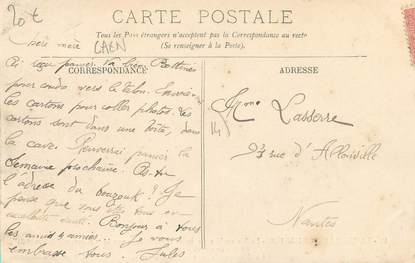 20 €
CARTE POSTALE
Tous les Pays étrangers n'acceptent pas la Correspondance au recto
(Se renseigner à la Poste).
CORRESPONDANCE
ADRESSE
Chère mère
CAEN
Ai reçu panier.
vers le talon.
les cartons pour coller photos. Les
cartons sont dans une boîte, dans
la cave. Renverrai panier la
semaine prochaine. As-tu
l'adresse du bouzouk ? Je
pense que vous êtes tous en
excellente santé. Bonjour à tous
les amis & amies... Je vous
embrasse tous. Jules
Mme Lasserre
14
rue d'Allonville
Nantes